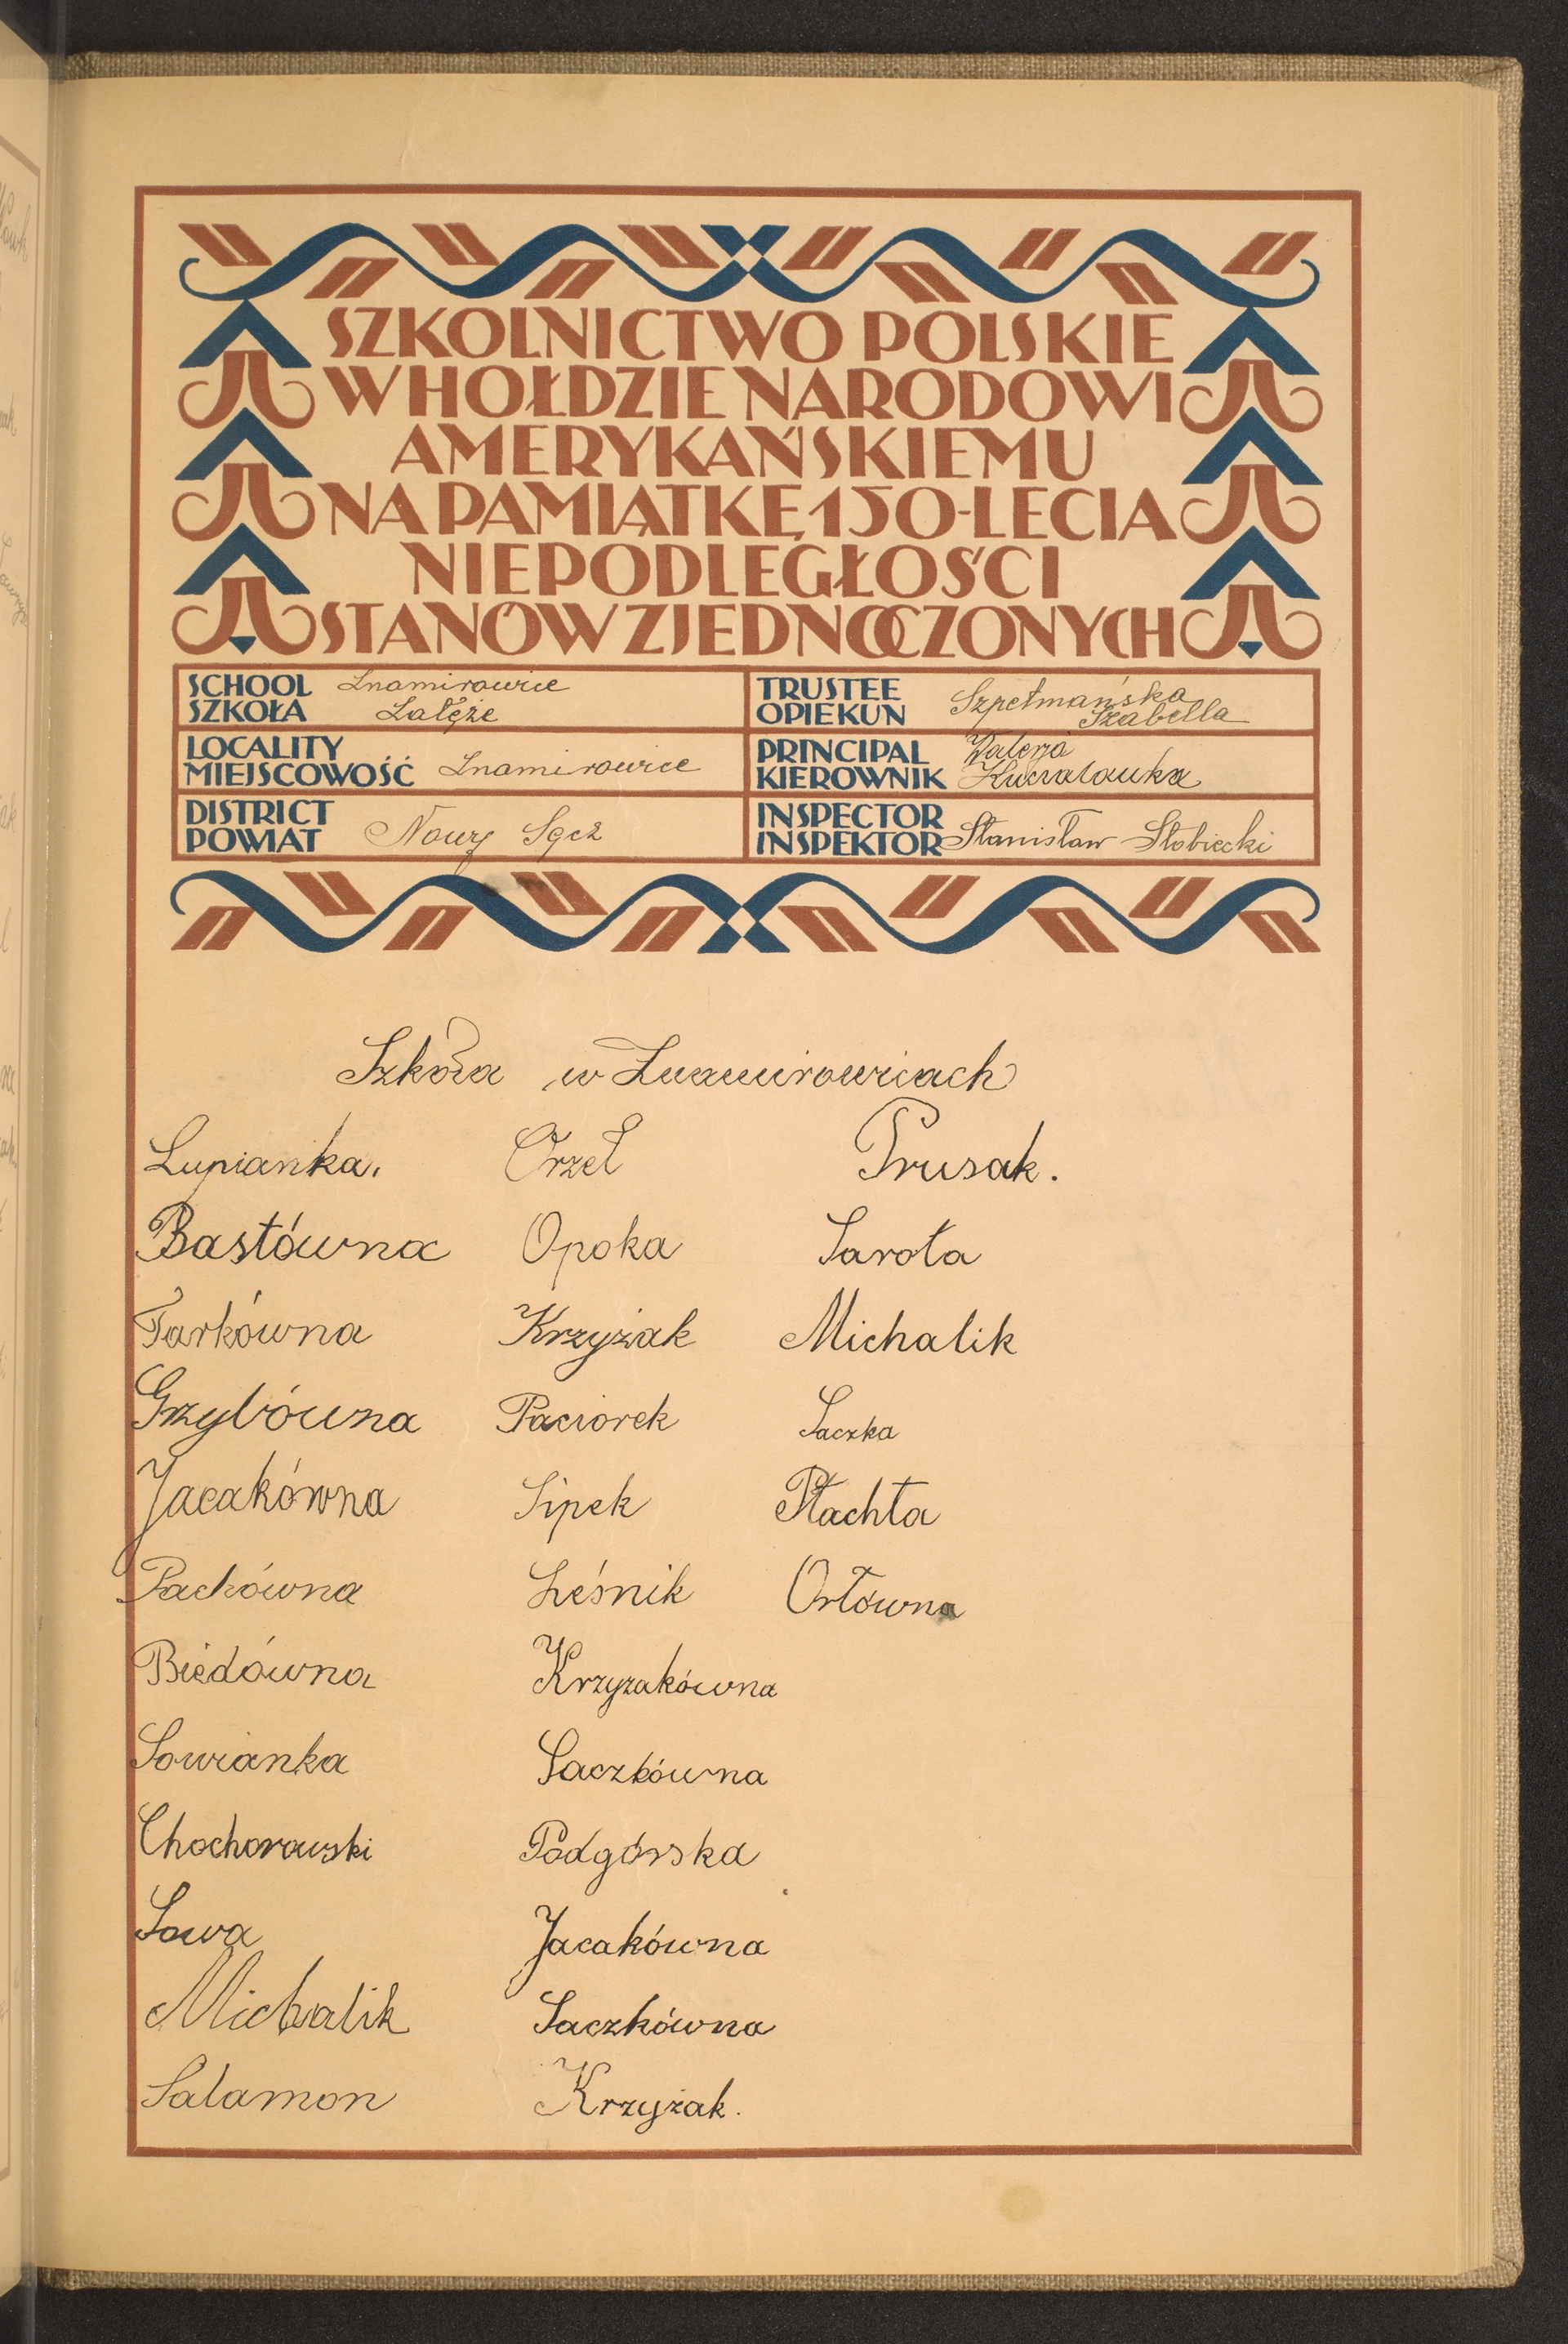 SZKOLNICTWO POLSKIE
W HOŁDZIE NARODOWI
AMERYKAŃSKIEMU
NA PAMIĄTKĘ 150-LECIA
NIEPODLEGŁOŚCI
STANÓW ZJEDNOCZONYCH
SCHOOL
SZKOŁA
Znamirowice
Załęże
TRUSTEE
OPIEKUN
Szpetmańska
Izabella
LOCALITY
MIEJSCOWOŚĆ Znamirowice
PRINCIPAL
KIEROWNIK
Walerja
DISTRICT
POWIAT Nowy Sącz
INSPECTOR
INSPEKTOR Stanisław Słobiecki
Szkoła w Znamirowicach
Lupianka. Orzeł Prusak.
Bastówna Opoka Sarota
Tarkówna Krzyżak Michalik
Grzybówna Paciorek Saczka
Jacakówna Sipek Płachta
Pachówna Leśnik Orłówna
Biedówna Krzyzakówna
Sowianka Saczkówna
Chochorowski Podgórska
Sowa Jacakówna
Michalik Saczkówna
Salamon Krzyżak.